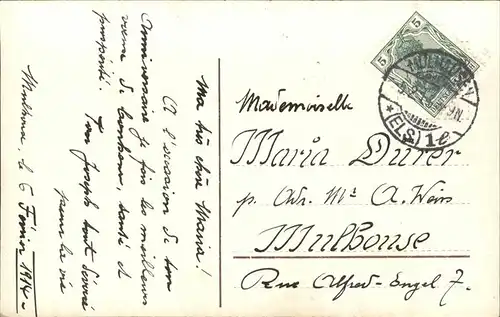 Ma très chère Maria!
A l'occasion de ton
Anniversaire je fais les meilleurs
voeux de bonheur, santé et
prosperité.
Ton Joseph tout dévoué
pour la vie
Mulhouse, le 6 Février 1914
5
5
MÜLHAUSEN
(ELS) 1e
Mademoiselle
Maria Durer
p. Adr. Mr A. Weiss
Mulhouse
Rue Alfred-Engel 7.